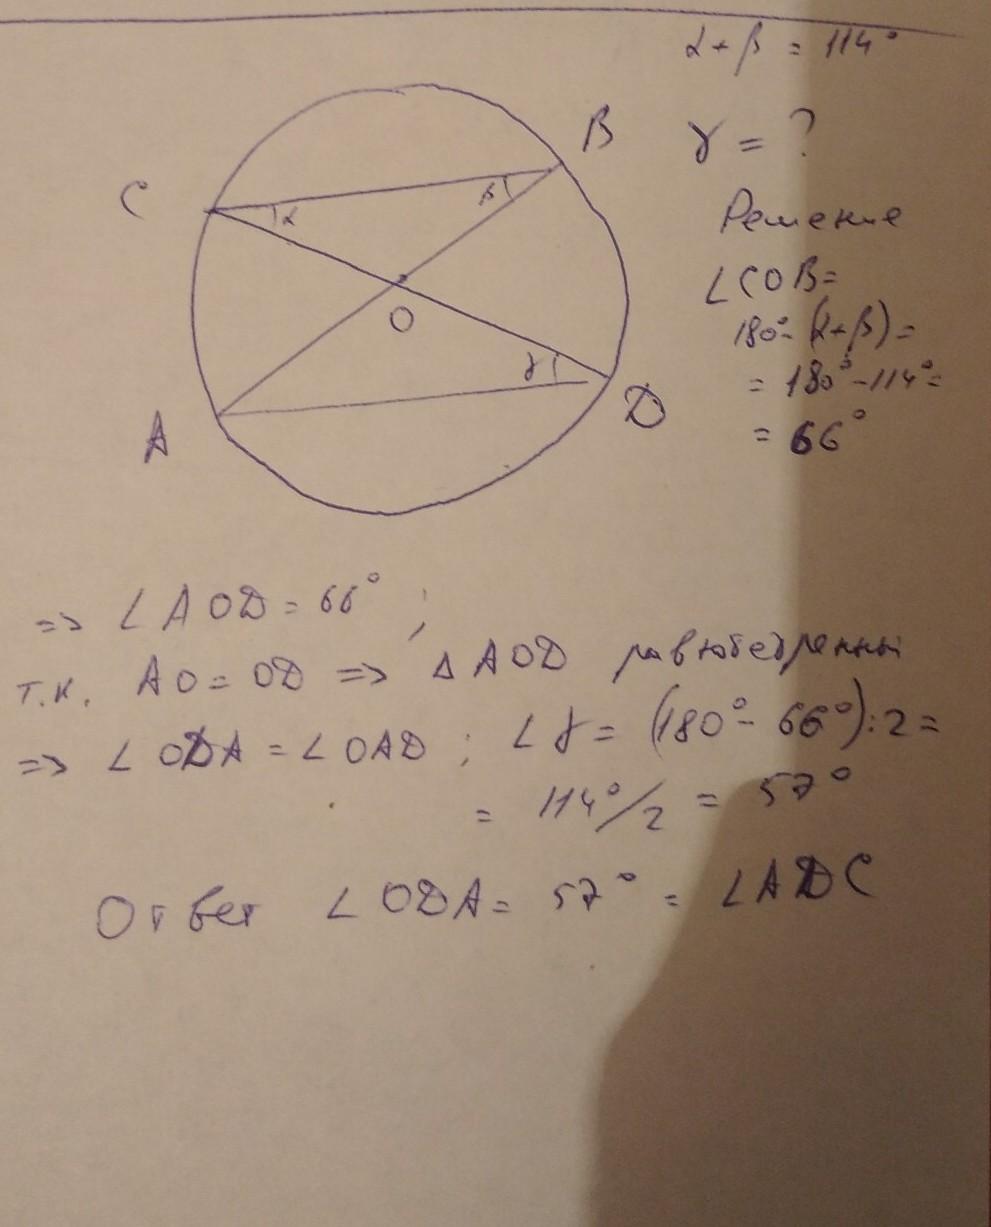 α + β = 114°
B
γ = ?
C
β
α
Решение
∠COB =
O
180° - (α + β) =
γ
= 180° - 114° =
D
A
= 66°
=> ∠AOD = 66° ;
т.к. AO = OD => △AOD равнобедренный
=> ∠ODA = ∠OAD ; ∠γ = (180° - 66°) : 2 =
= 114°/2 = 57°
Ответ ∠ODA = 57° = ∠ADC